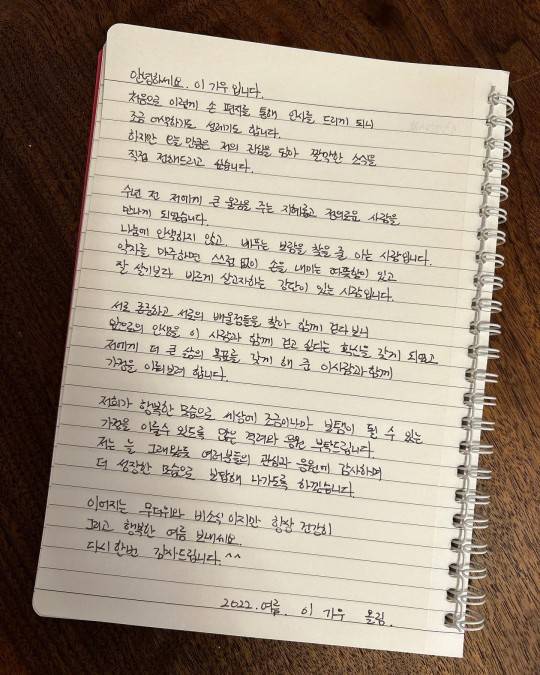 안녕하세요. 이 가우 입니다.
처음으로 이렇게 손 편지를 통해 인사를 드리게 되니
조금 어색하기도 설레기도 합니다.
하지만 오늘 만큼은 저의 진심을 담아 짤막한 소식을
직접 전해드리고 싶습니다.
수년 전 저에게 큰 울림을 주는 지혜롭고 정의로운 사람을
만나게 되었습니다.
나눔에 인색하지 않고, 베푸는 보람을 찾을 줄 아는 사람입니다.
약자를 마주하면 스스럼 없이 손을 내미는 따뜻함이 있고
잘 살기보다 바르게 살고자하는 강단이 있는 사람입니다.
서로 존중하고 서로의 배울점들을 찾아 함께 걷다보니
앞으로의 인생을 이 사람과 함께 걷고 싶다는 확신을 갖게 되었고
저에게 더 큰 삶의 목표를 갖게 해 준 이사람과 함께
가정을 이뤄보려 합니다.
저희가 행복한 모습으로 세상에 조금이나마 보탬이 될 수 있는
가정을 이룰수 있도록 많은 격려와 응원 부탁드립니다.
저는 늘 그래왔듯 여러분들의 관심과 응원에 감사하며
더 성장한 모습으로 보답해 나가도록 하겠습니다.
이어지는 무더위와 비소식 이지만 항상 건강히
그리고 행복한 여름 보내세요.
다시한번 감사드립니다.^^
2022. 여름. 이 가우 올림.